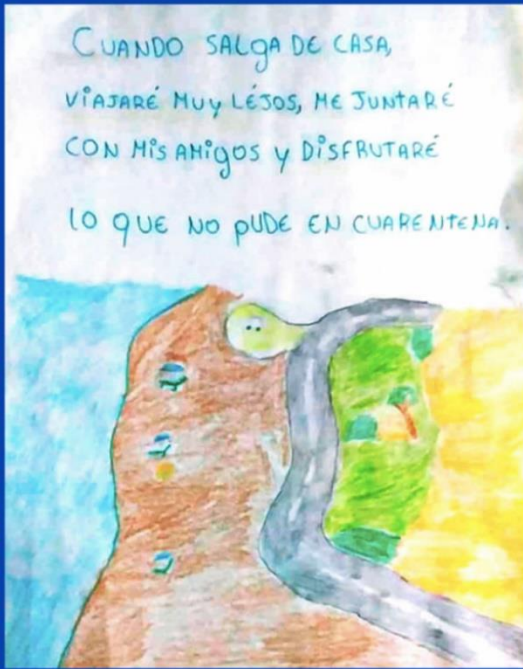 CUANDO SALGA DE CASA,
VIAJARÉ MUY LÉJOS, ME JUNTARÉ
CON MIS AMIGOS Y DISFRUTARÉ
LO QUE NO PUDE EN CUARENTENA.